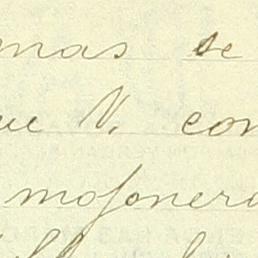 mas se
ue V. con
mojoner